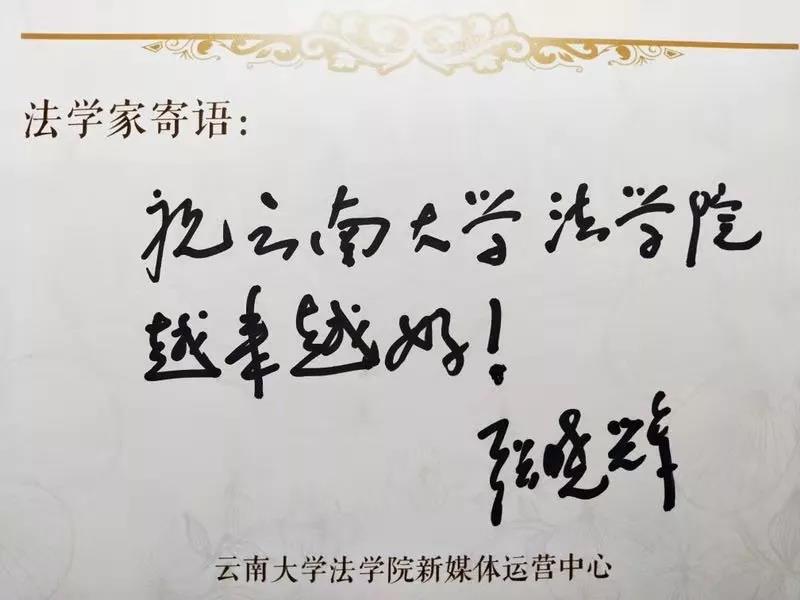 法学家寄语:
祝云南大学法学院
越来越好!
张晓辉
云南大学法学院新媒体运营中心